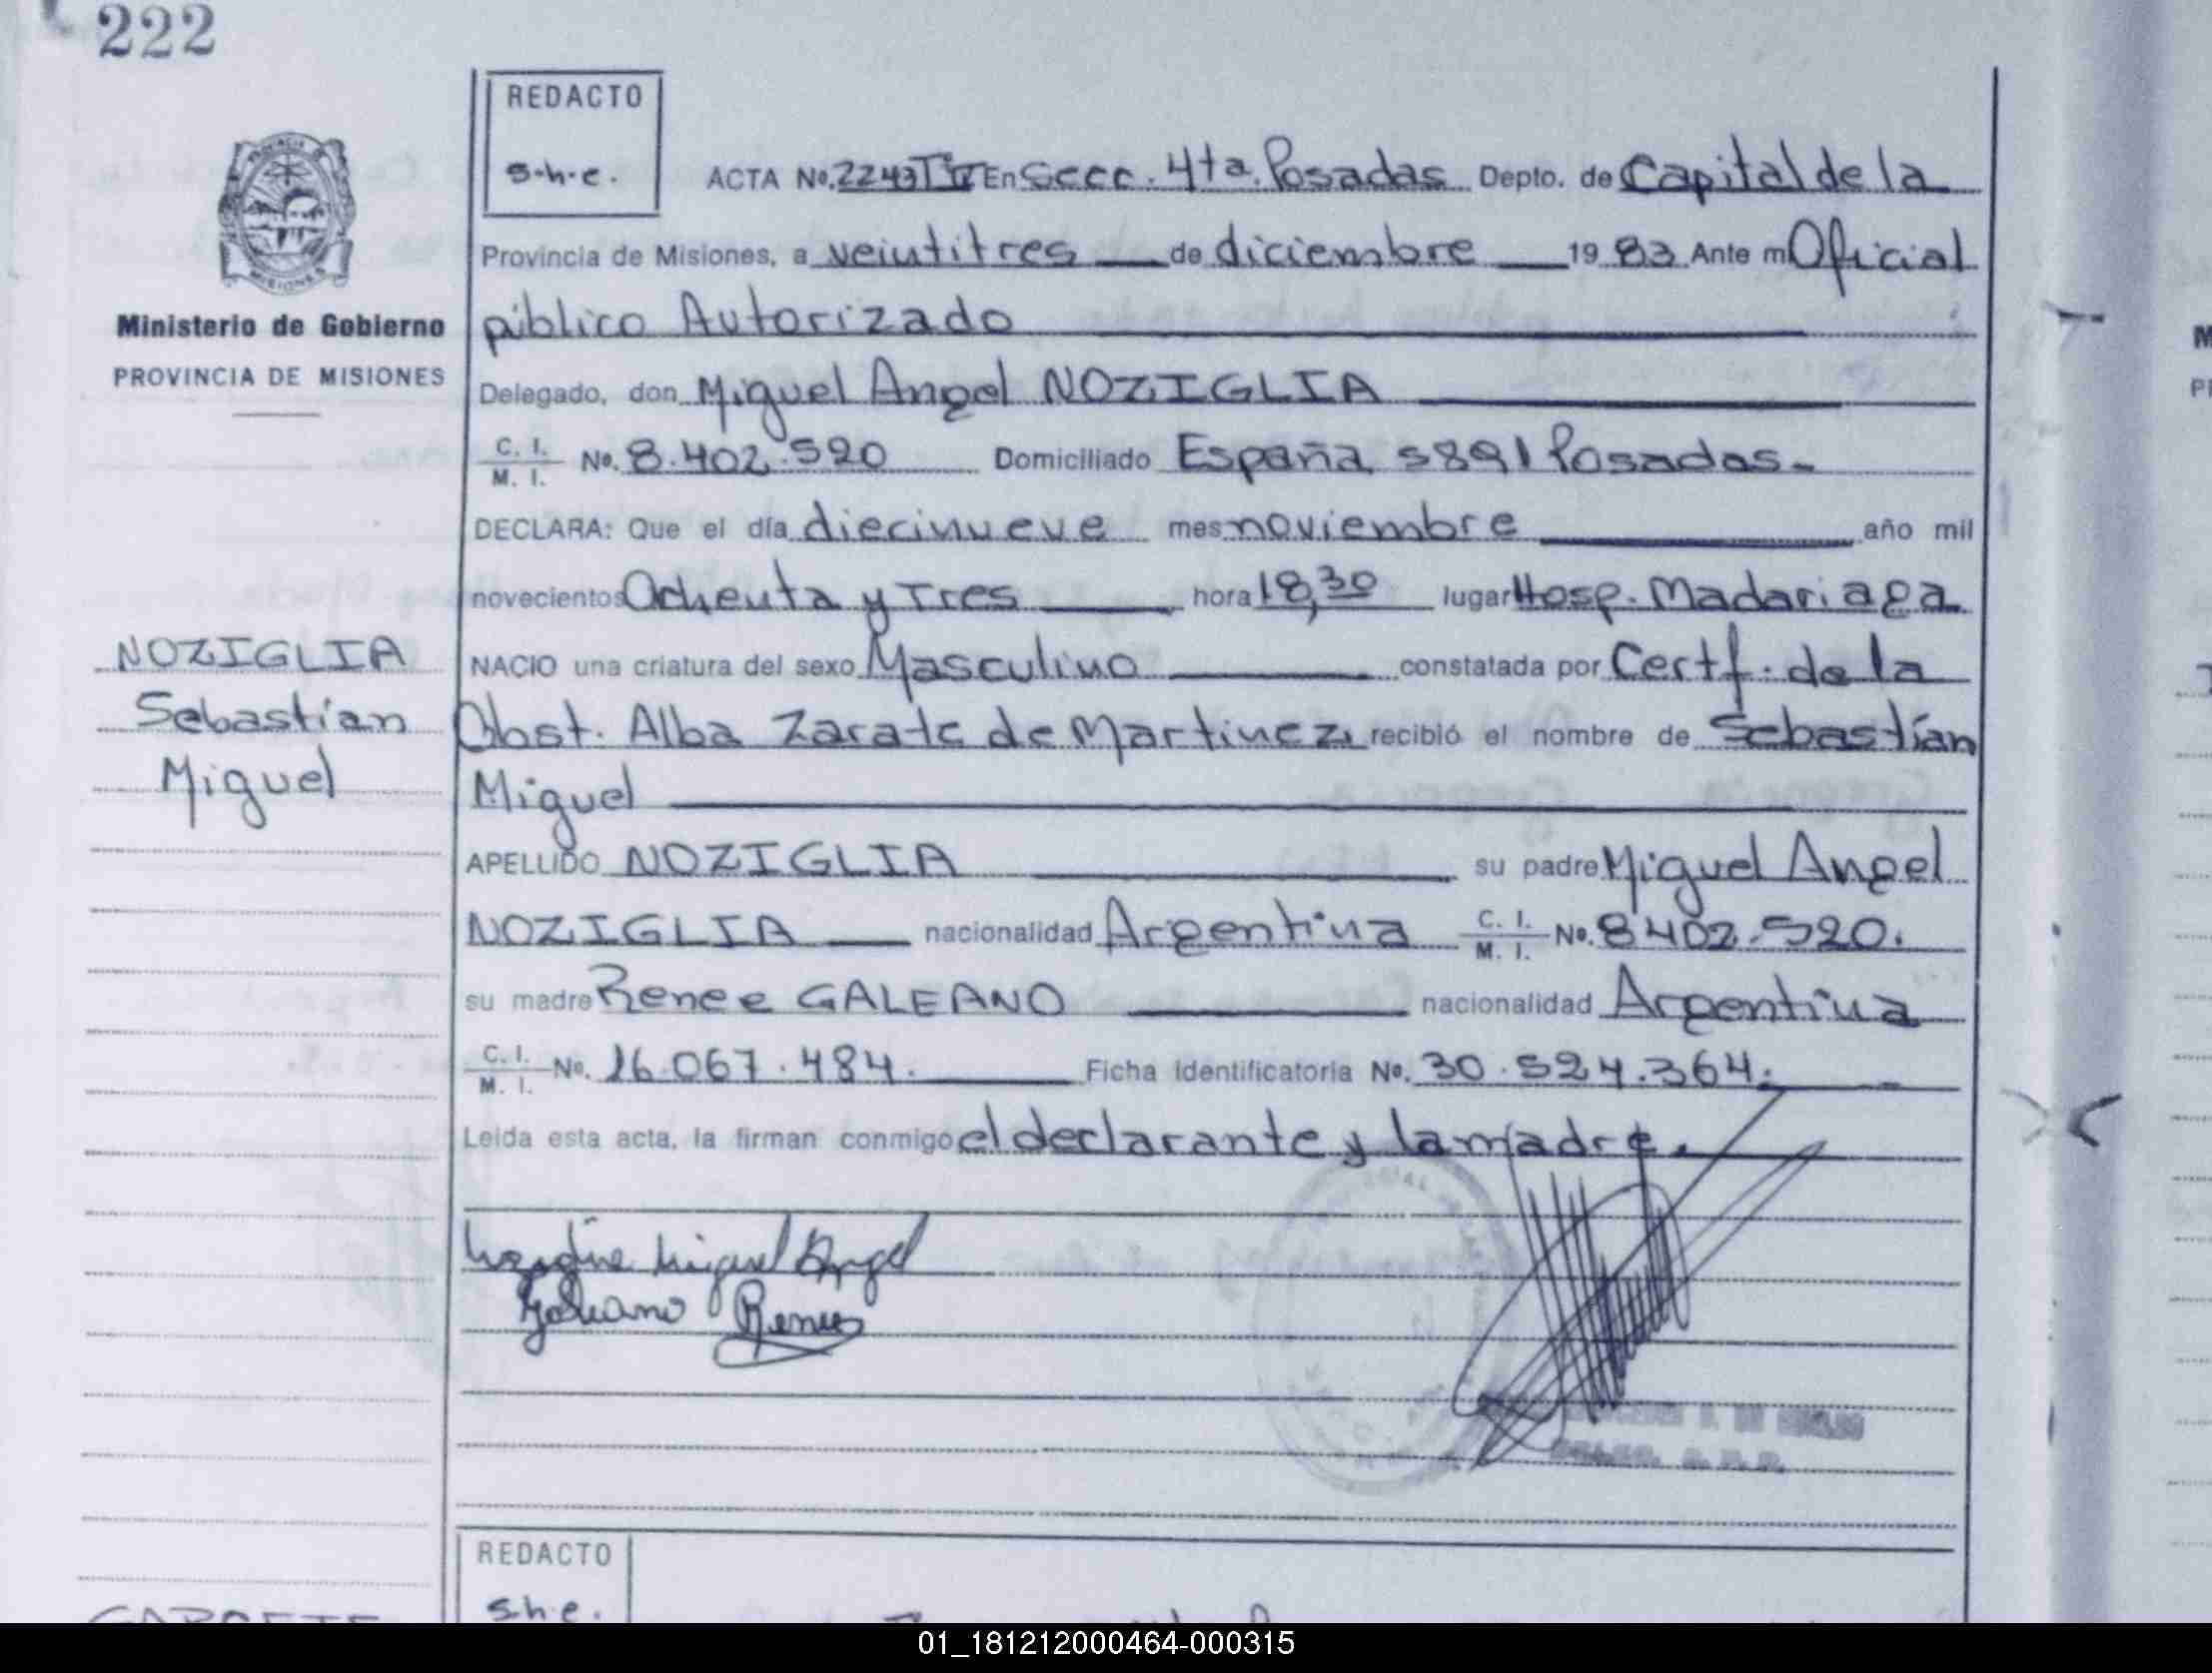 222
REDACTO
s.h.e.
ACTA No. 2243 T° IV En Secc. 4ta. Posadas Depto. de Capital de la
Provincia de Misiones, a veintitres de diciembre 19 83 Ante m Oficial
público Autorizado
Delegado, don Miguel Angel NOZIGLIA
C. I.
M. I. No. 8.402.520 Domiciliado España 5891 Posadas.
DECLARA: Que el día diecinueve mes noviembre año mil
novecientos Ochenta y Tres hora 18,30 lugar Hosp. Madariaga
NACIO una criatura del sexo Masculino constatada por Certf. de la
Obst. Alba Zarate de Martinez recibió el nombre de Sebastían
Miguel
APELLIDO NOZIGLIA su padre Miguel Angel
NOZIGLIA nacionalidad Argentina C. I.
M. I. No. 8402.520.
su madre Renee GALEANO nacionalidad Argentina
C. I.
M. I. No. 16.067.484. Ficha Identificatoria No. 30.524.364.
Leida esta acta, la firman conmigo el declarante y la madre.
Miguel Angel
Galeano Renee
PROVINCIA DE
MISIONES
Ministerio de Gobierno
PROVINCIA DE MISIONES
NOZIGLIA
Sebastían
Miguel
REDACTO
s.h.e.
01_181212000464-000315